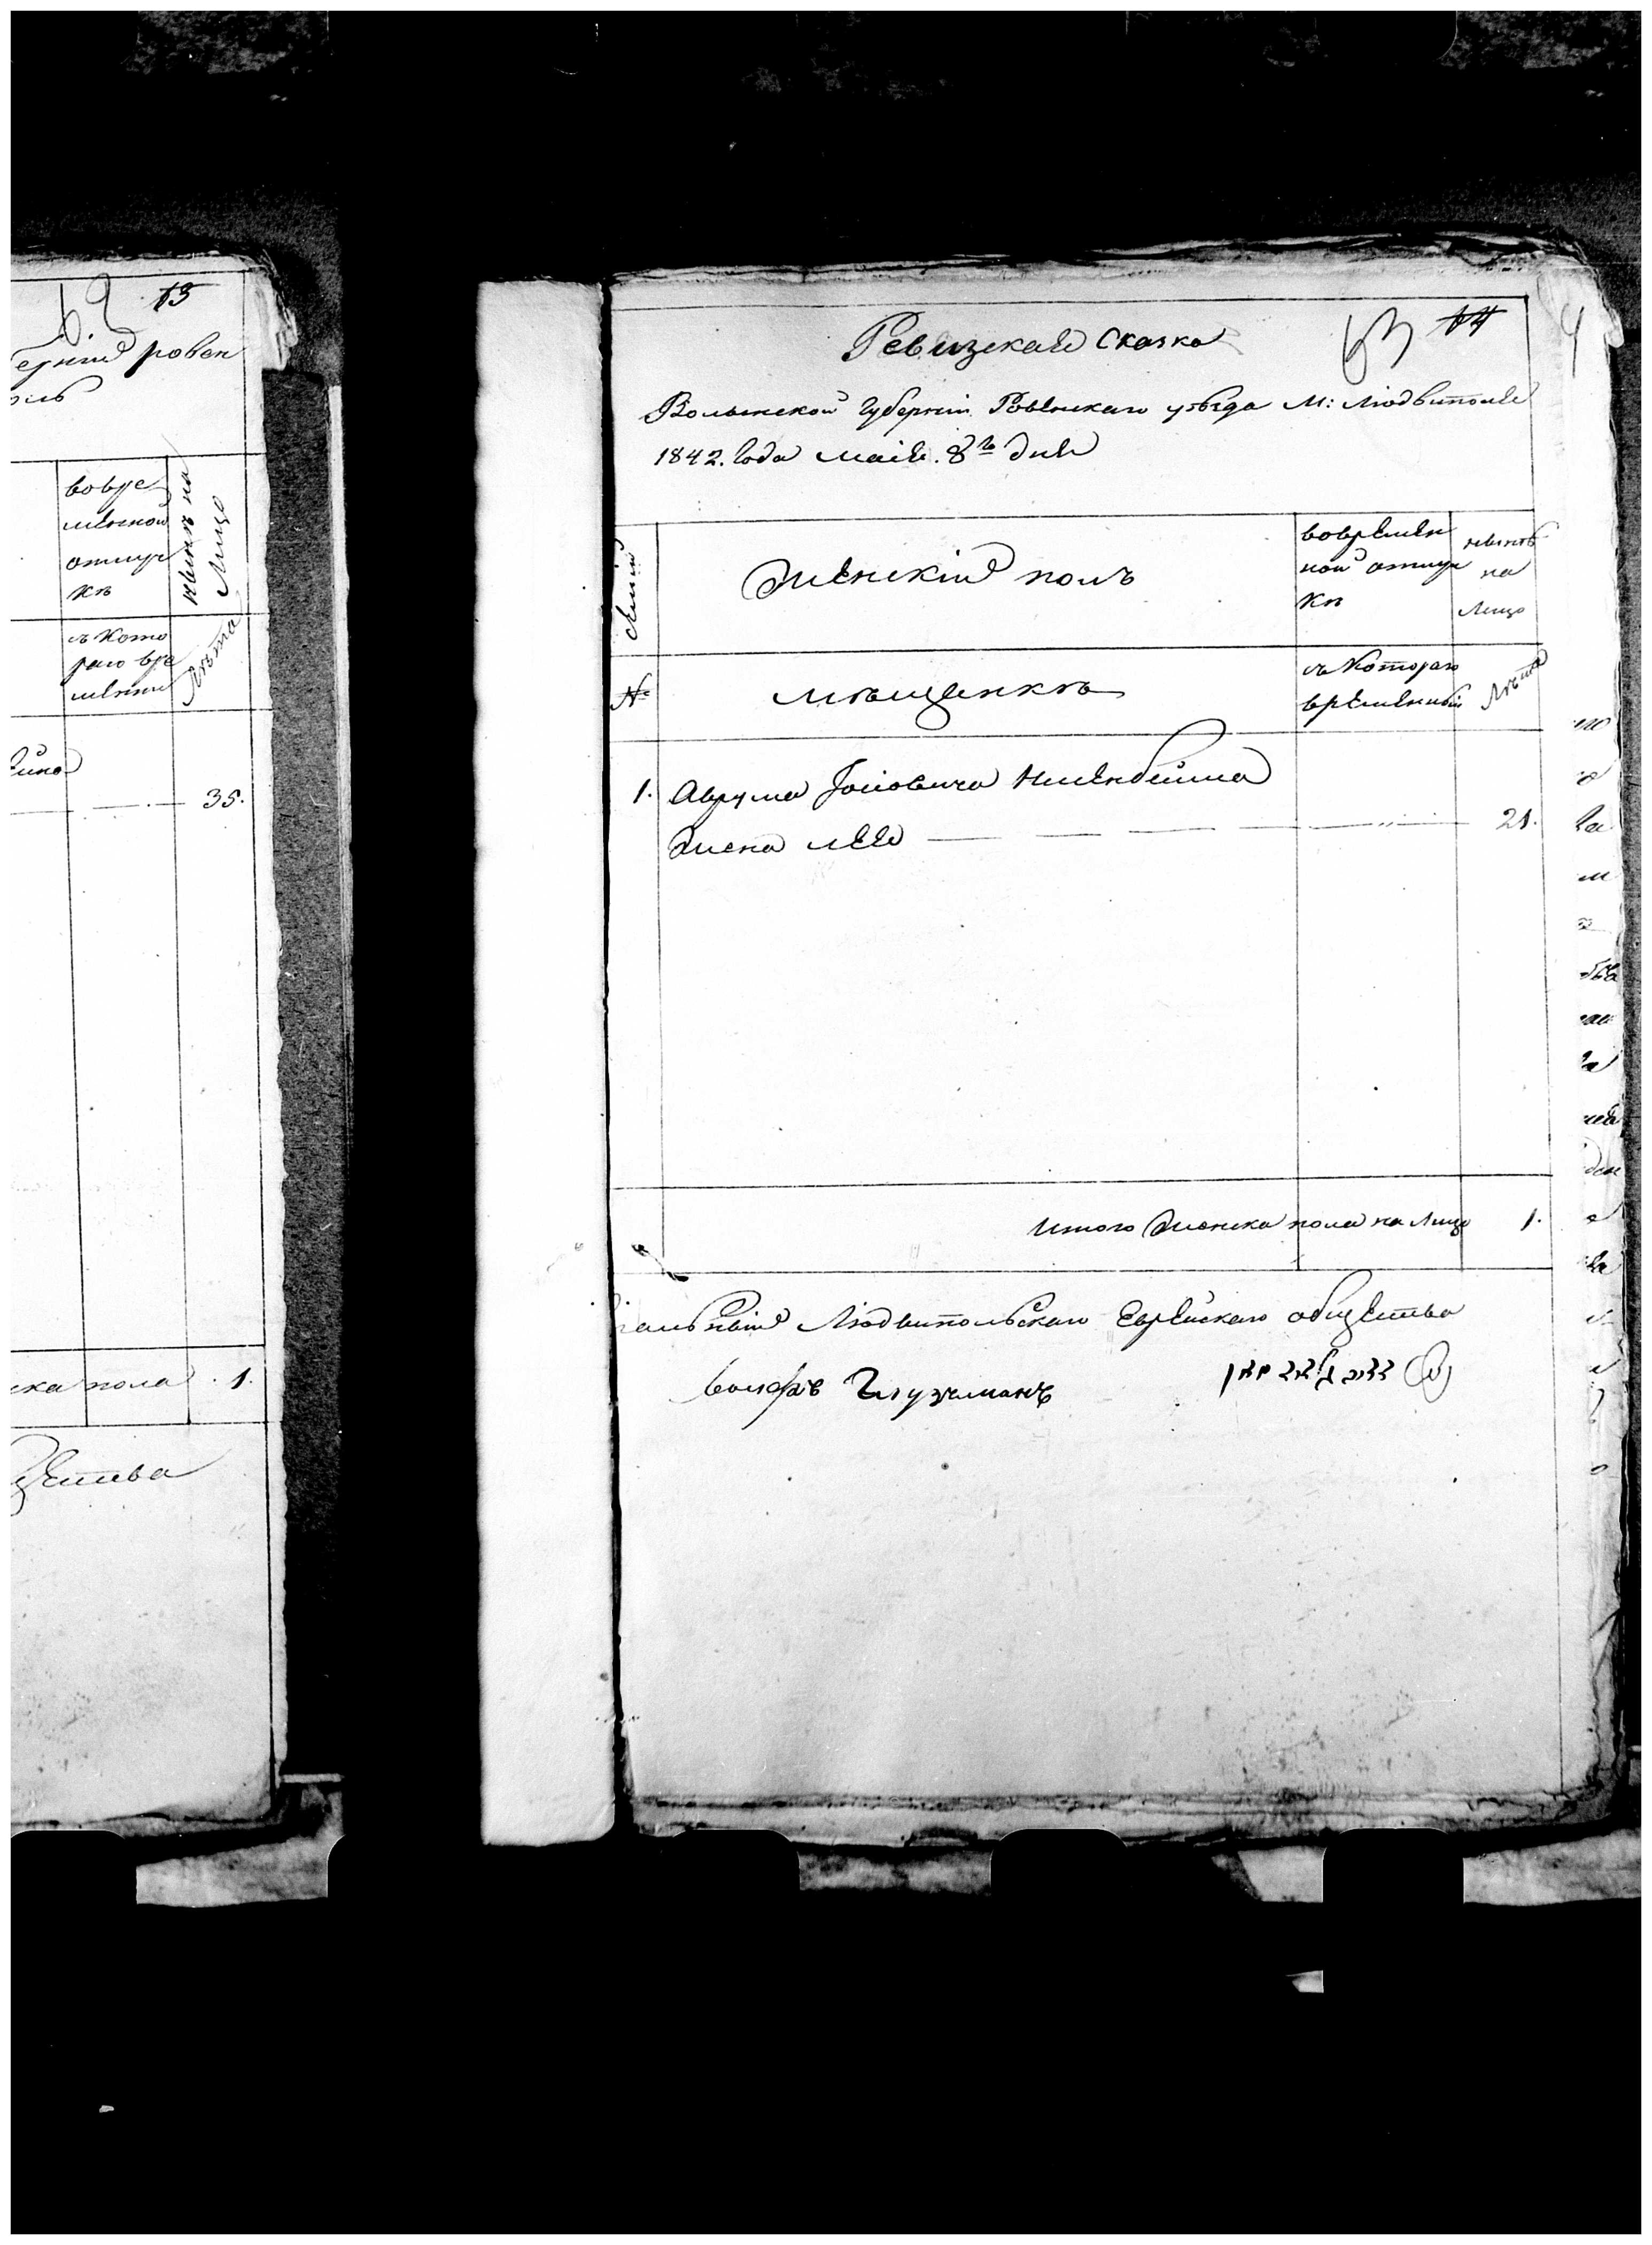 13
ерніи ровен
оль
вовре
менной
отлуч
кѣ
налицо
съ кото
раго вре
мени
Лѣта
35.
ска пола 1.
щества
14
Ревизская сказка
Волынской Губерніи Ровенскаго уѣзда М: Людвиполя
1842. Года маія. 8го дня
Женскій полъ
вовремен
ной отлуч
кѣ
на
Лицо
№
мѣщенкѣ
съ котораго
времени
Лѣта
1. Аврума Іосіовича
Жена Лея 21.
Итого Женска пола на Лицо 1.
альный Людвипольскаго Еврейскаго общества
Волфъ Глузманъ